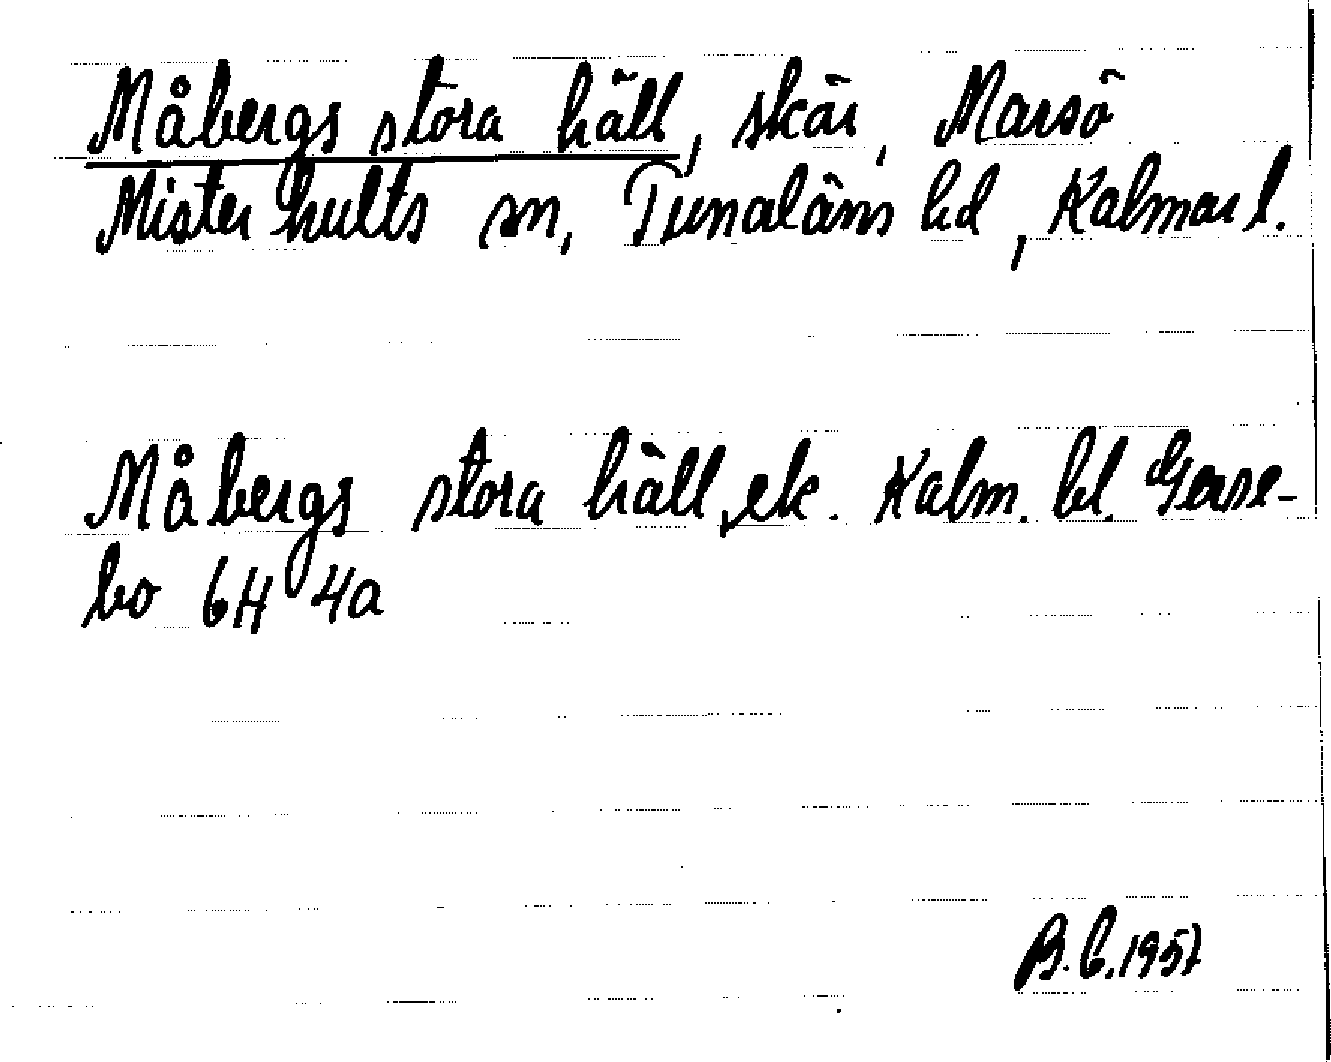 Måbergs stora häll, skär, Marsö
Misterhults sn, Tunaläns hd, Kalmar l.
Måbergs stora häll, ek. Kalm. bl. Gerse-
bo 6H 4a
B.C. 1957